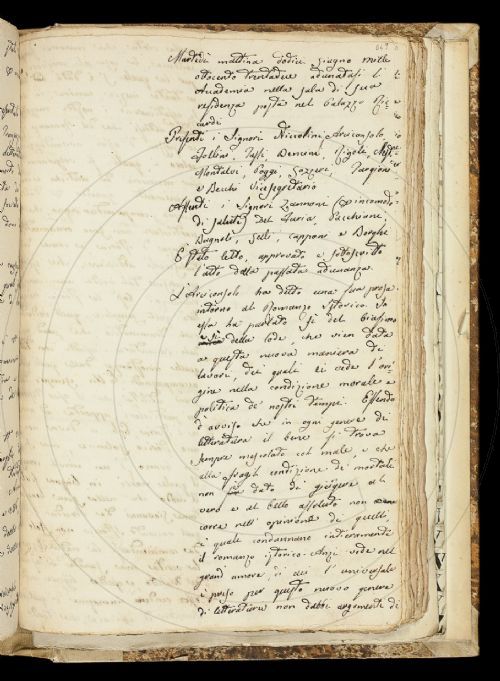 Martedì mattina dodici Giugno mille
ottocento trentadue adunatasi l'
Accademia nella sala di sua
residenza posta nel Palazzo Ric=
cardi
Presenti i Signori Niccolini Arciconsolo
Follini, Tassi, Bencini, Rigoli,
Montalvi, Poggi, Gazzeri, Targioni
e Becchi Vicesegretario
Assenti i Signori Zannoni (per incomodo
di salute) Del Furia, Pacchiani,
Bagnoli, Gelli, Capponi e Borghi
È stato letto, approvato e sottoscritto
l'atto della passata adunanza.
L'Arciconsolo ha detto una sua prosa
intorno al Romanzo istorico. In
essa ha parlato sì del biasimo
sì della lode, che vien data
a questa nuova maniera di
lavori, dei quali ei vede l'ori=
gine nella condizione morale e
politica de' nostri tempi. Essendo
d'avviso che in ogni genere di
letteratura il bene si trova
sempre mescolato col male, e che
alla fragil condizione di mortale
non è dato di giugnere al
vero e al bello assoluto non con=
corre nell'opinione di quelli
i quali condannano interamente
il romanzo istorico. Anzi vede nel
grand'amore di cui l'universale
è preso per questo nuovo genere
di letteratura non dubbi argomenti di